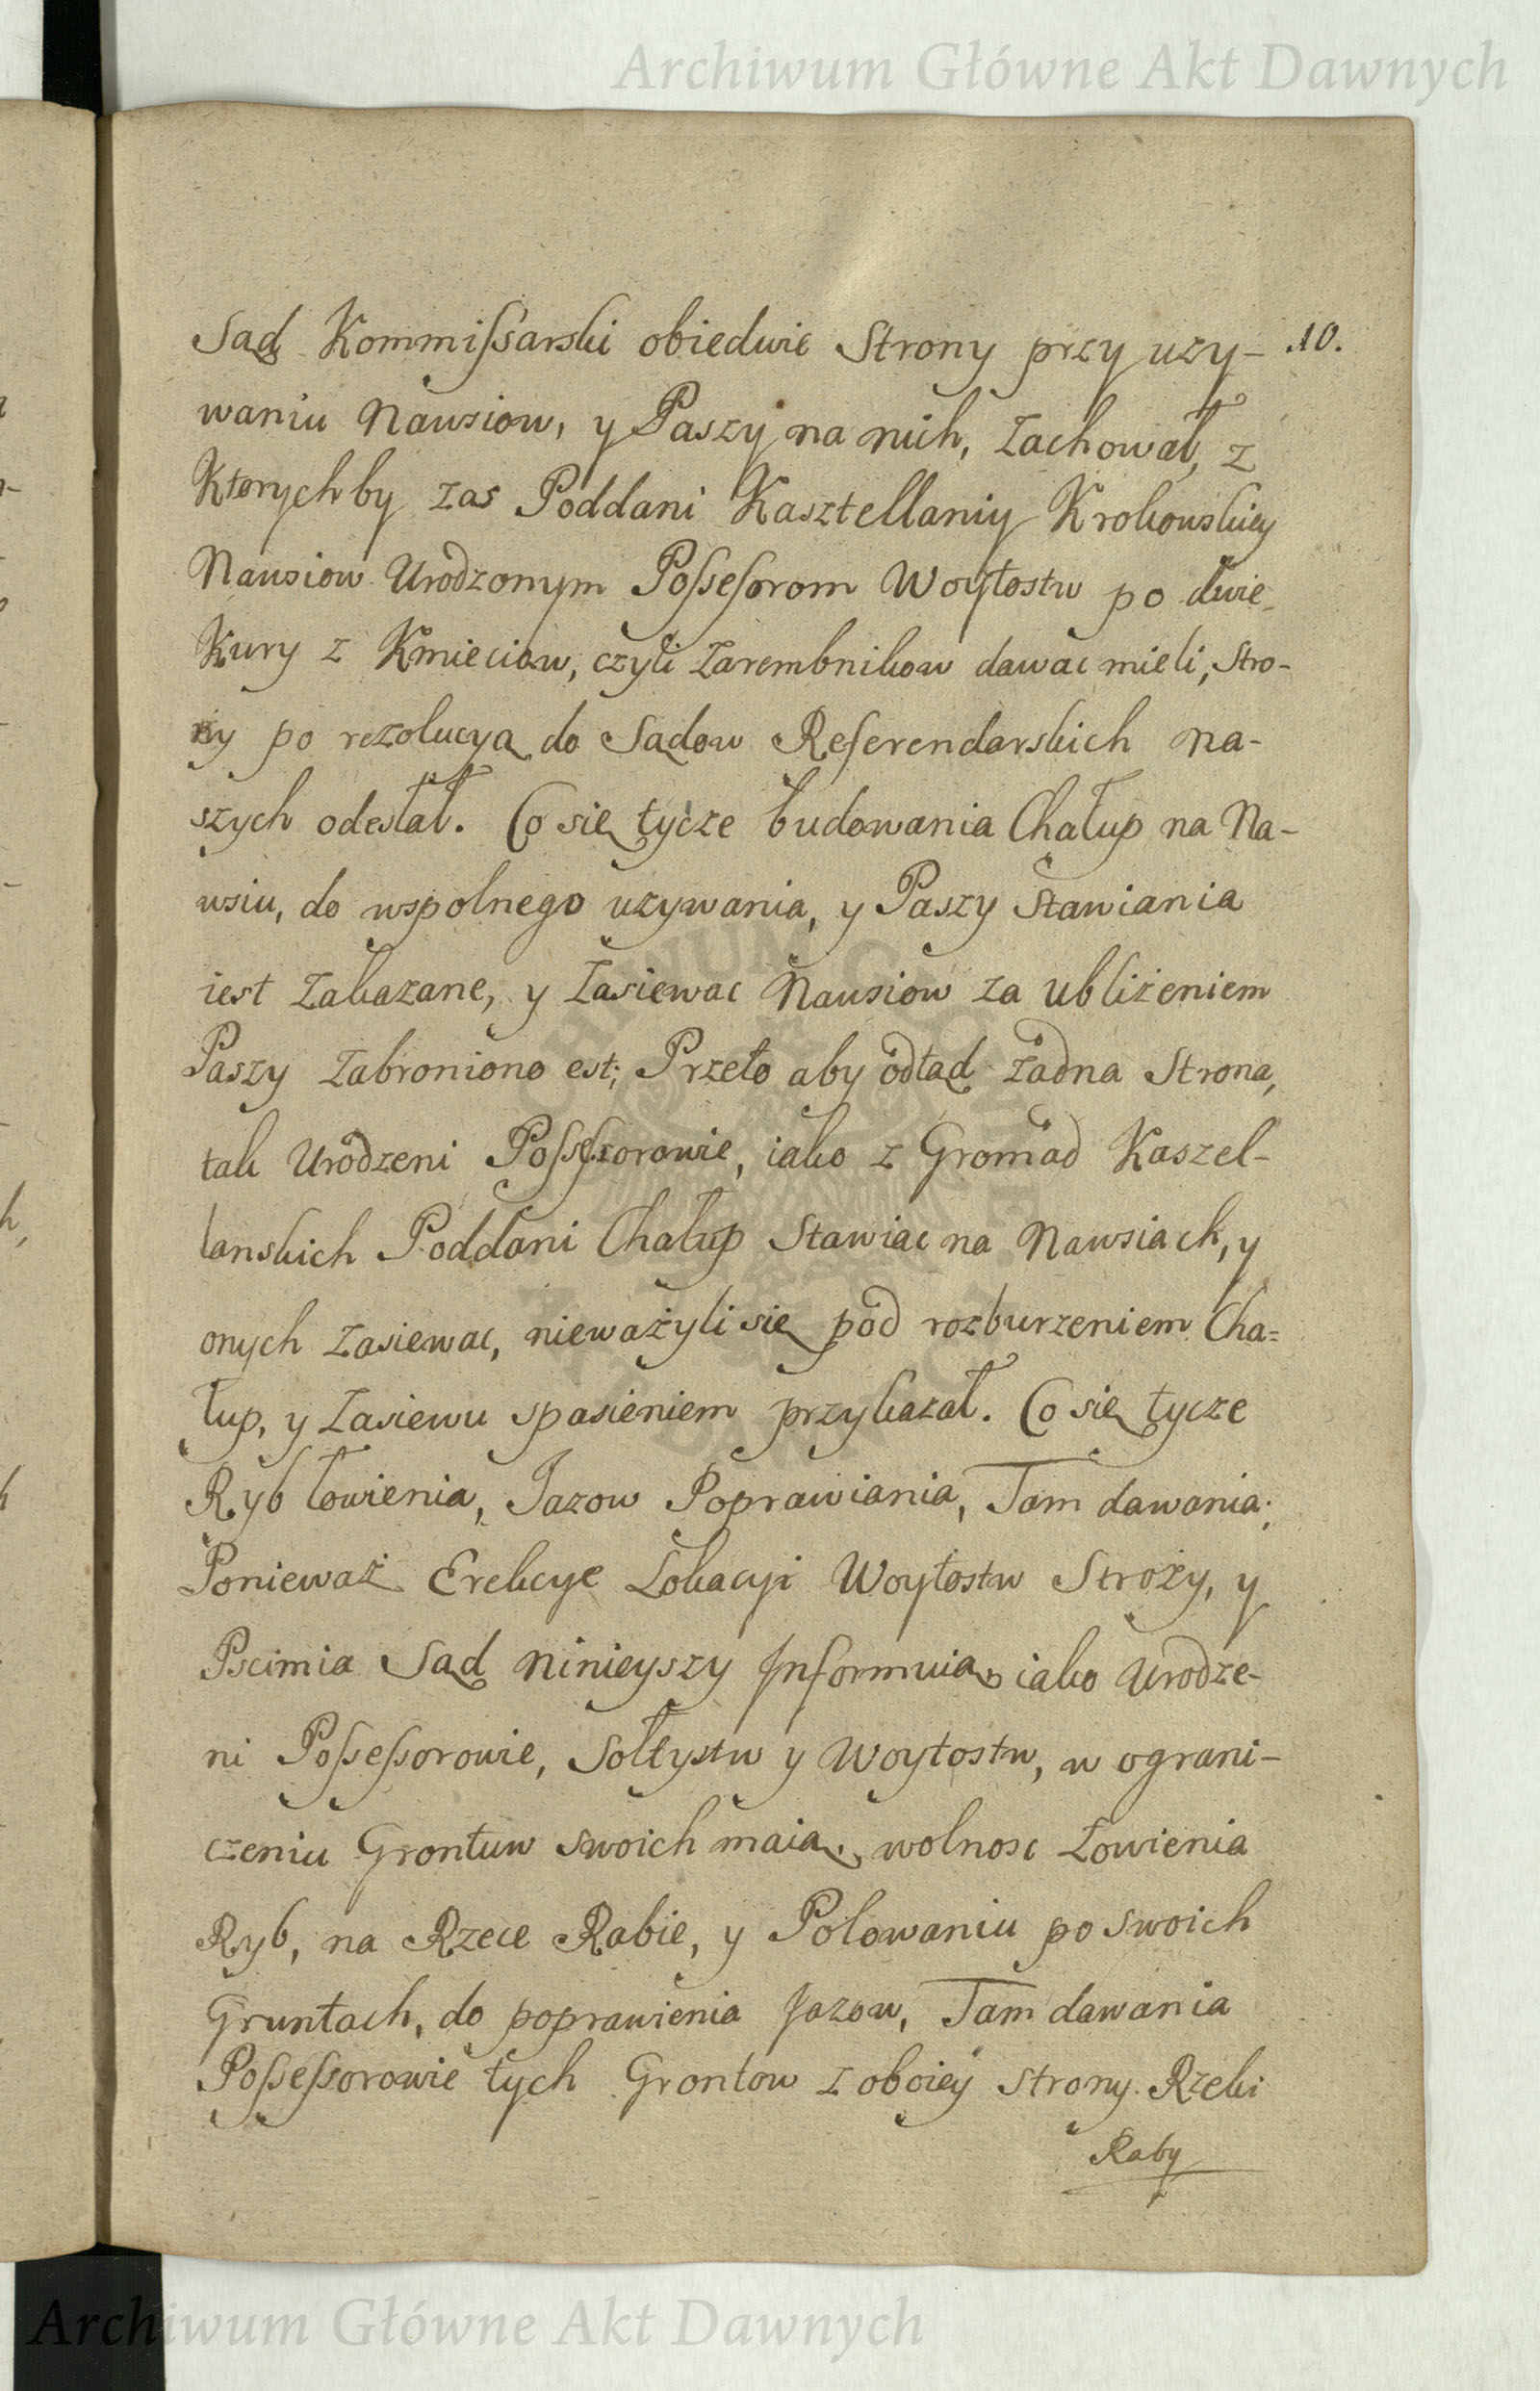 Archiwum Główne Akt Dawnych
Sąd Kommissarski obiedwie Strony przy uzy- 10.
waniu Nawsiow, y Paszy na nich, Zachował, z
Ktorychby zas Poddani Kasztellaniy Krokowskiey
Nawsiow Urodzonym Possessorom Woytostw po dwie
Kury z Kmieciow, czyli Zarembnikow dawac mieli, Stro-
ny po rezolucyą do Sądow Referendarskich na-
szych odesłał. Co się tycze budowania Chałup na Na-
wsiu, do wspolnego uzywania, y Paszy Stawiania
iest Zakazane, y Zasiewac Nawsiow za ubliżeniem
Paszy Zabroniono est; Przeto aby odtąd żadna Strona,
tak Urodzeni Possessorowie, iako z Gromad Kaszel-
lanskich Poddani Chałup Stawiac na Nawsiach, y
onych Zasiewac, nieważyli się pod rozburzeniem Cha=
łup, y Zasiewu spasieniem przykazał. Co się tycze
Ryb łowienia, Jazow Poprawiania, Tam dawania;
Ponieważ Erekcye Lokacyi Woytostw Stroży, y
Pscimia Sąd ninieyszy Jnformuią, iako Urodze-
ni Possessorowie, Sołtystw y Woytostw, w ograni-
czeniu Grontuw swoich maią, wolnosc Łowienia
Ryb, na Rzece Rabie, y Polowaniu po swoich
Gruntach, do poprawienia Jazow, Tam dawania
Possessorowie tych Grontow z oboiey strony Rzeki
Raby
Archiwum Główne Akt Dawnych